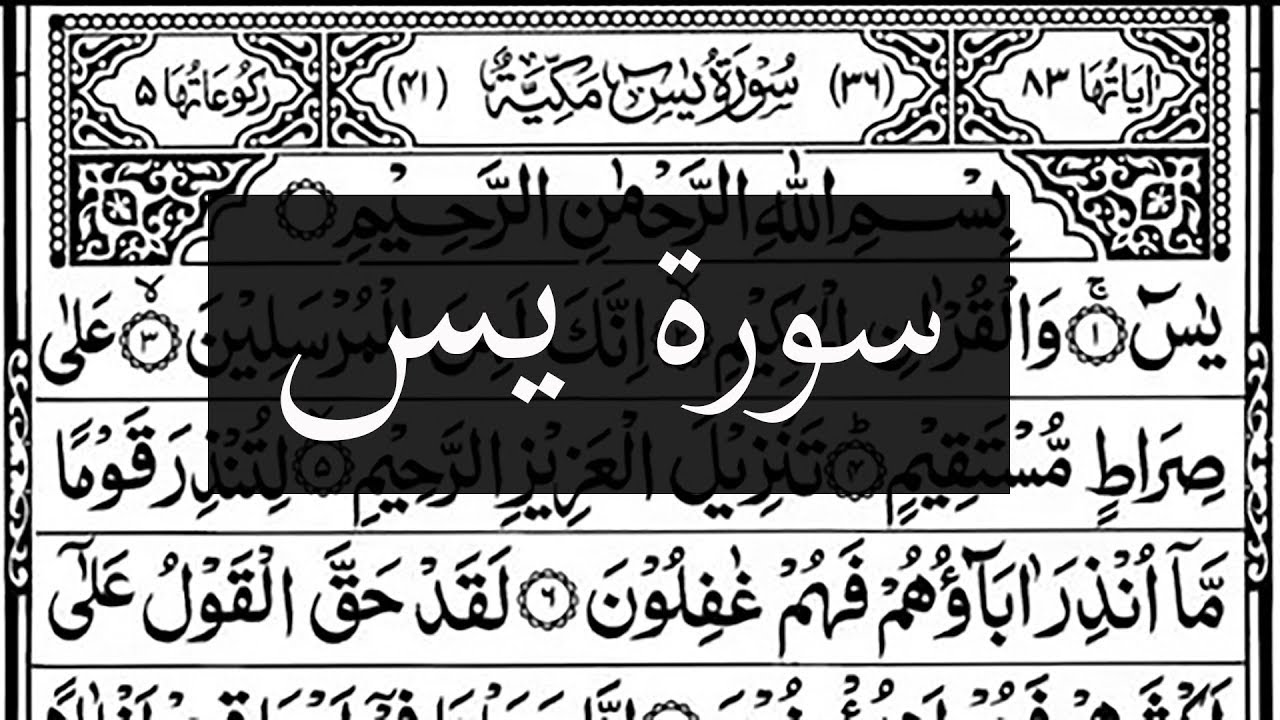 اٰيَاتُهَا ٨٣ (٣٦) سُوْرَةُ يٰسٓ مَكِّيَّةٌ (٤١) رُكُوْعَاتُهَا ٥
بِسْمِ اللّٰهِ الرَّحْمٰنِ الرَّحِيْمِ
سورة يس
يٰسٓ ۚ ١ وَالْقُرْاٰنِ الْحَكِيْمِ ٢ اِنَّكَ لَمِنَ الْمُرْسَلِيْنَ ۙ ٣ عَلٰى
صِرَاطٍ مُّسْتَقِيْمٍ ؕ ٤ تَنْزِيْلَ الْعَزِيْزِ الرَّحِيْمِ ۙ ٥ لِتُنْذِرَ قَوْمًا
مَّآ اُنْذِرَ اٰبَآؤُهُمْ فَهُمْ غٰفِلُوْنَ ٦ لَقَدْ حَقَّ الْقَوْلُ عَلٰٓى